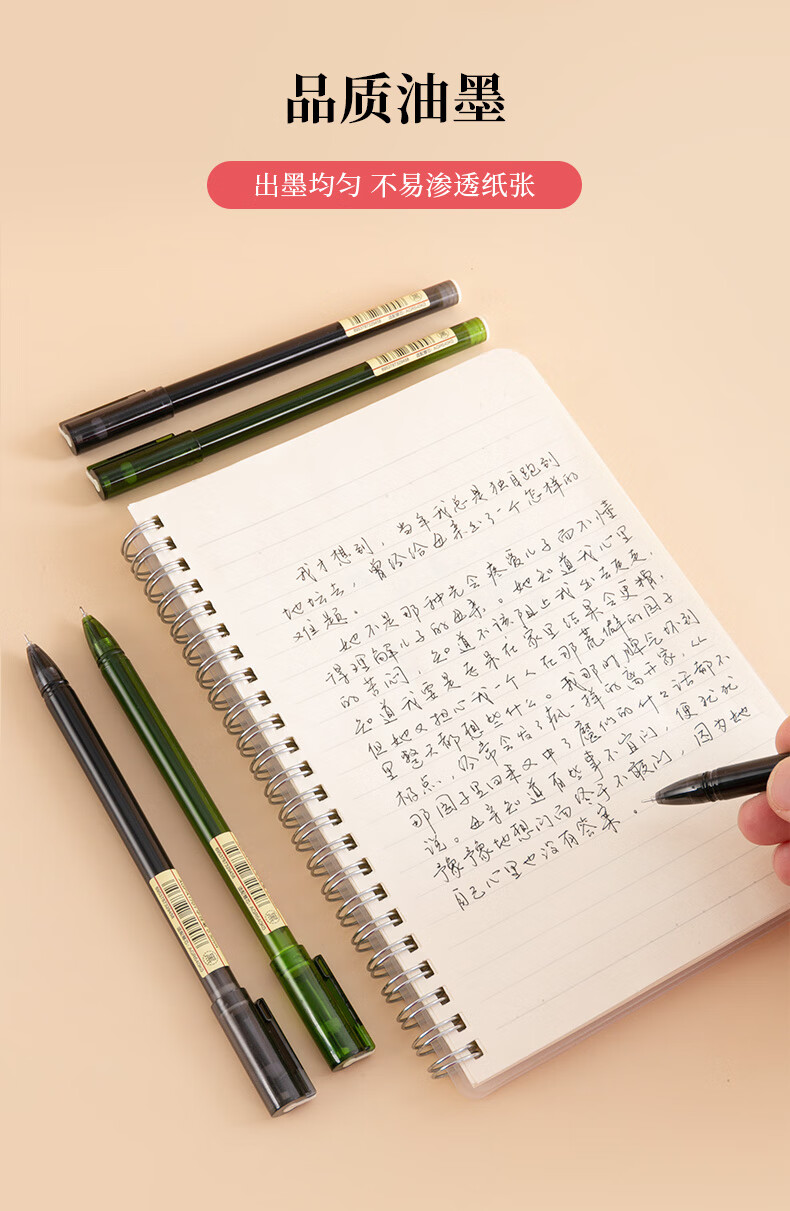 品质油墨
出墨均匀 不易渗透纸张
我才想到，当年我总是独自跑到
地坛去，曾经给母亲出了一个怎样的
难题。
她不是那种光会疼爱儿子而不懂
得理解儿子的母亲。她知道我心里
的苦闷，知道不该阻止我出去走走，
知道我要是老呆在家里结果会更糟，
但她又担心我一个人在那荒僻的园子
里整天都想些什么。我那时脾气坏到
极点，经常会发了疯一样的离开家，从
那园子里回来又中了魔似的什么话都不
说。母亲知道有些事不宜问，便犹犹
豫豫地想问而终于不敢问，因为她
自己心里也没有答案。
黑